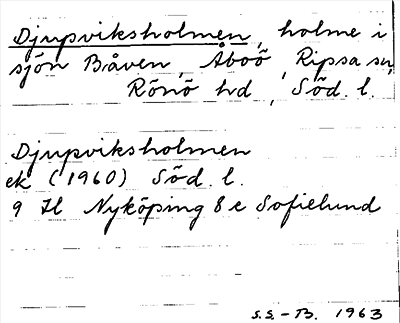 Djupviksholmen, holme i
sjön Båven, Åboö, Ripsa sn,
Rönö hd, Söd. l.
Djupviksholmen
ek (1960) Söd. l.
9 H Nyköping 8 e Sofielund
S.S.-B. 1963